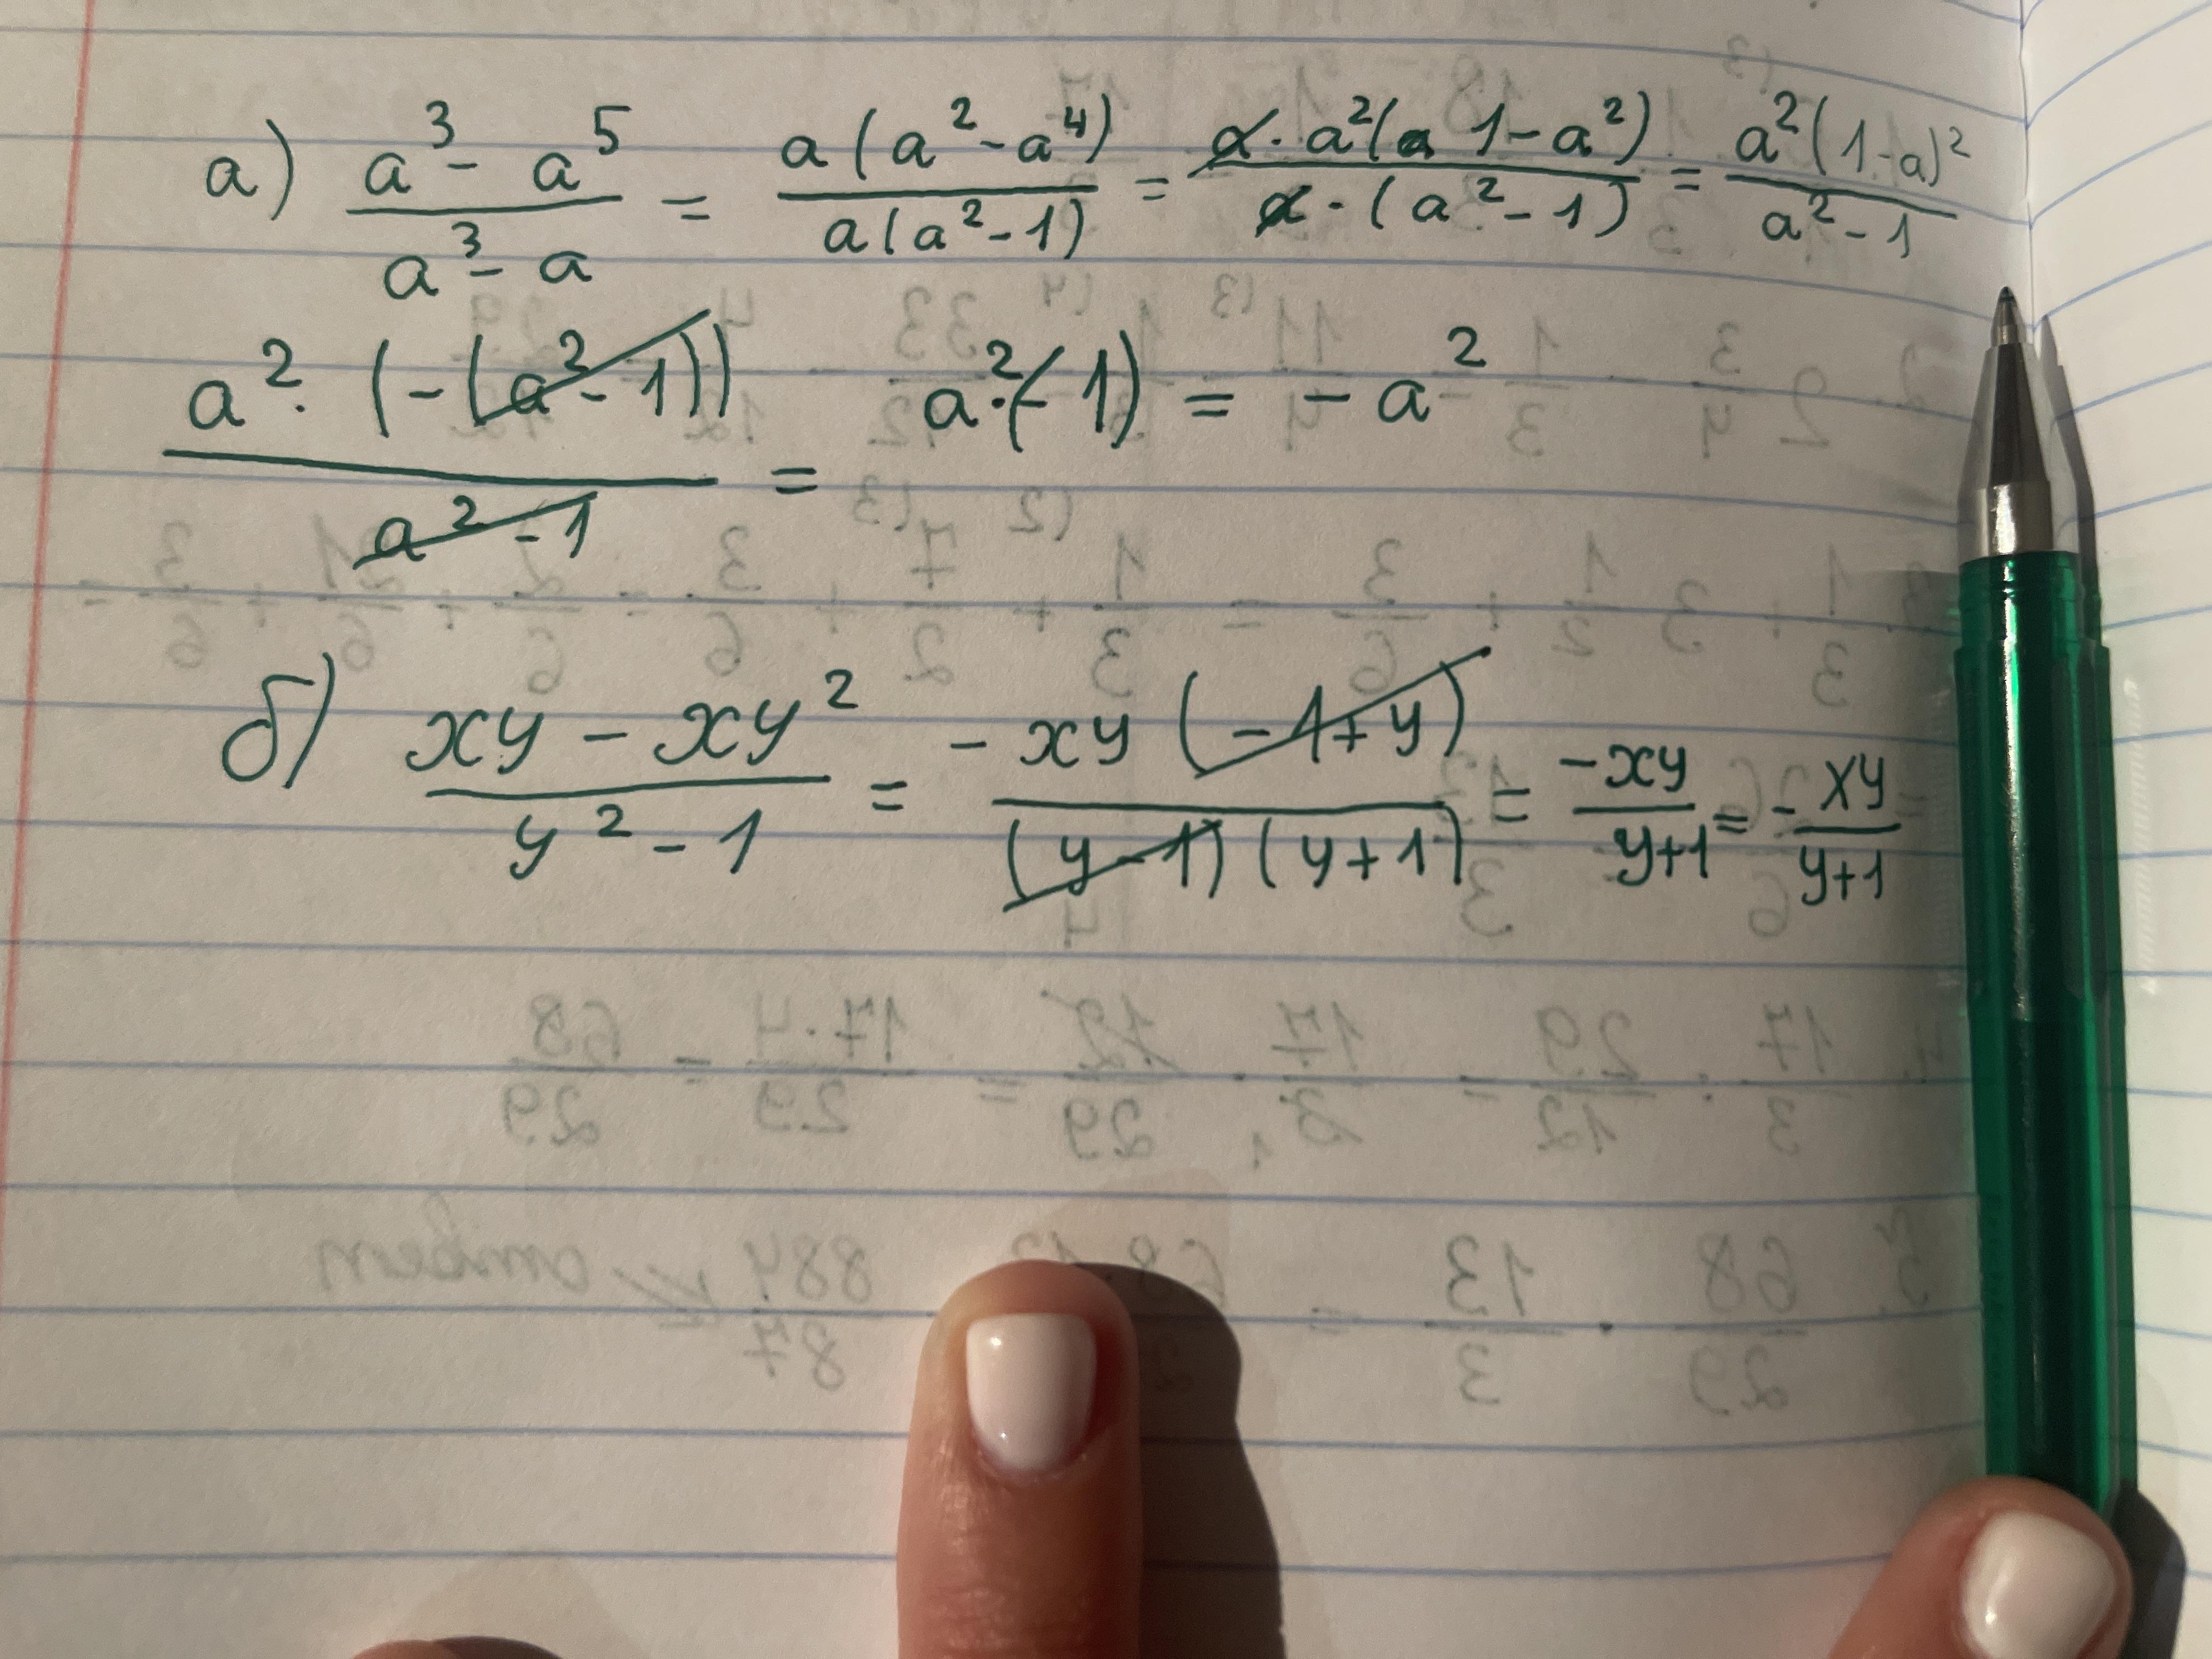 а) (a³ - a⁵)/(a³ - a) = a(a² - a⁴)/a(a² - 1) = a · a²(a 1 - a²)/a · (a² - 1) = a²(1 - a)²/a² - 1
a² · (-(a² - 1))/a² - 1 = a² · (-1) = -a²
б) (xy - xy²)/(y² - 1) = -xy(-1 + y)/(y - 1)(y + 1) = -xy/y+1 = - xy/y+1